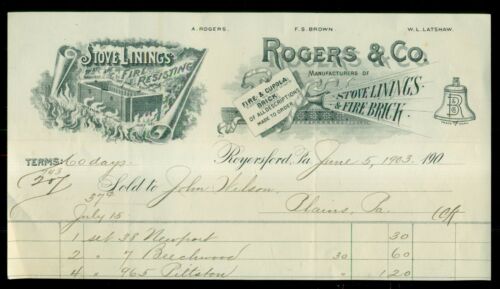 A. ROGERS. F. S. BROWN W. L. LATSHAW.
STOVE LININGS
FIRE
RESISTING
ROGERS & CO.
MANUFACTURERS OF
STOVE LININGS
& FIRE BRICK.
FIRE & CUPOLA
BRICK
OF ALL DESCRIPTIONS
MADE TO ORDER
B
TRADE MARK
TERMS: 60 days. Royersford, Pa June 5, 1903. 190
Sold to John Wilson,
Plains, Pa.
July 15
1 set 38 Newport 30
2 " 7 Beechwood 30 60
4 " 965 Pittston " 120